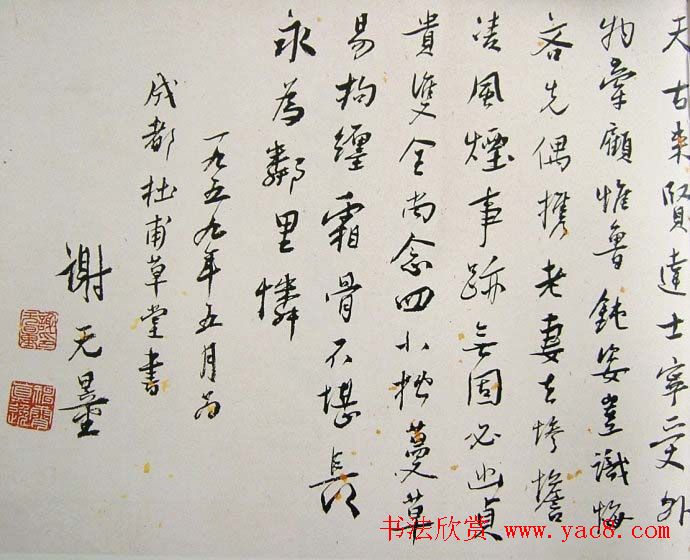 天古来賢達士寧受外
物牽顧惟魯鈍姿豈識悔
吝先偶攜老妻去慘憺
凌風煙事跡無固必幽貞
貴雙全尚念四小松蔓草
易拘纏霜骨不堪長
永為鄰里憐
一九五九年五月為
成都杜甫草堂書
謝无量
书法欣赏 www.yac8.com